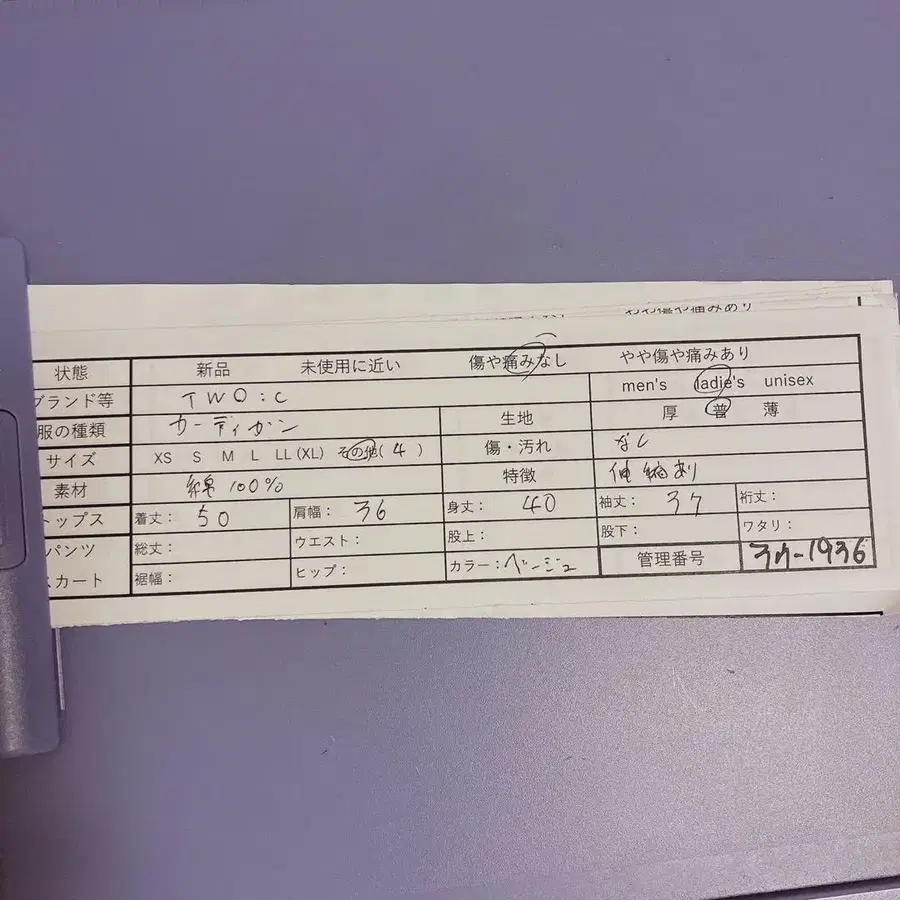 やや傷や痛みあり
状態 新品 未使用に近い 傷や痛みなし やや傷や痛みあり
ブランド等 TWO:C men's ladie's unisex
服の種類 カーディガン 生地 厚 普 薄
サイズ XS S M L LL(XL) その他(4) 傷・汚れ なし
素材 綿100% 特徴 伸縮あり
トップス 着丈:50 肩幅:36 身丈:40 袖丈:37 裄丈:
パンツ 総丈: ウエスト: 股上: 股下: ワタリ:
スカート 裾幅: ヒップ: カラー:ベージュ 管理番号 -1936